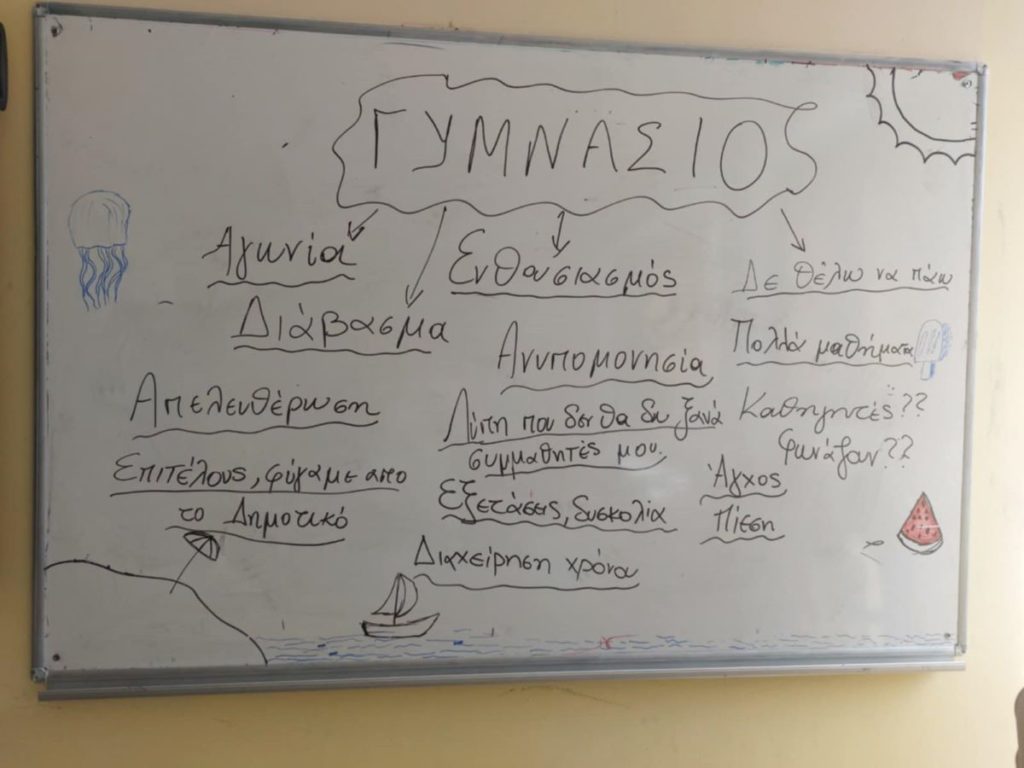 ΓΥΜΝΑΣΙΟ
Αγωνία
Ενθασιασμός
Δε θέλω να πάω
Διάβασμα
Ανυπομονησία
Πολλά μαθήματα
Απελευθέρωση
Λύπη που δεν θα δω ξανά
συμμαθητές μου.
Καθηγητές??
φωνάζουν??
Επιτέλους, φύγαμε απο
το Δημοτικό
Εξετάσεις, δυσκολία
Άγχος
Πίεση
Διαχείρηση χρόνου